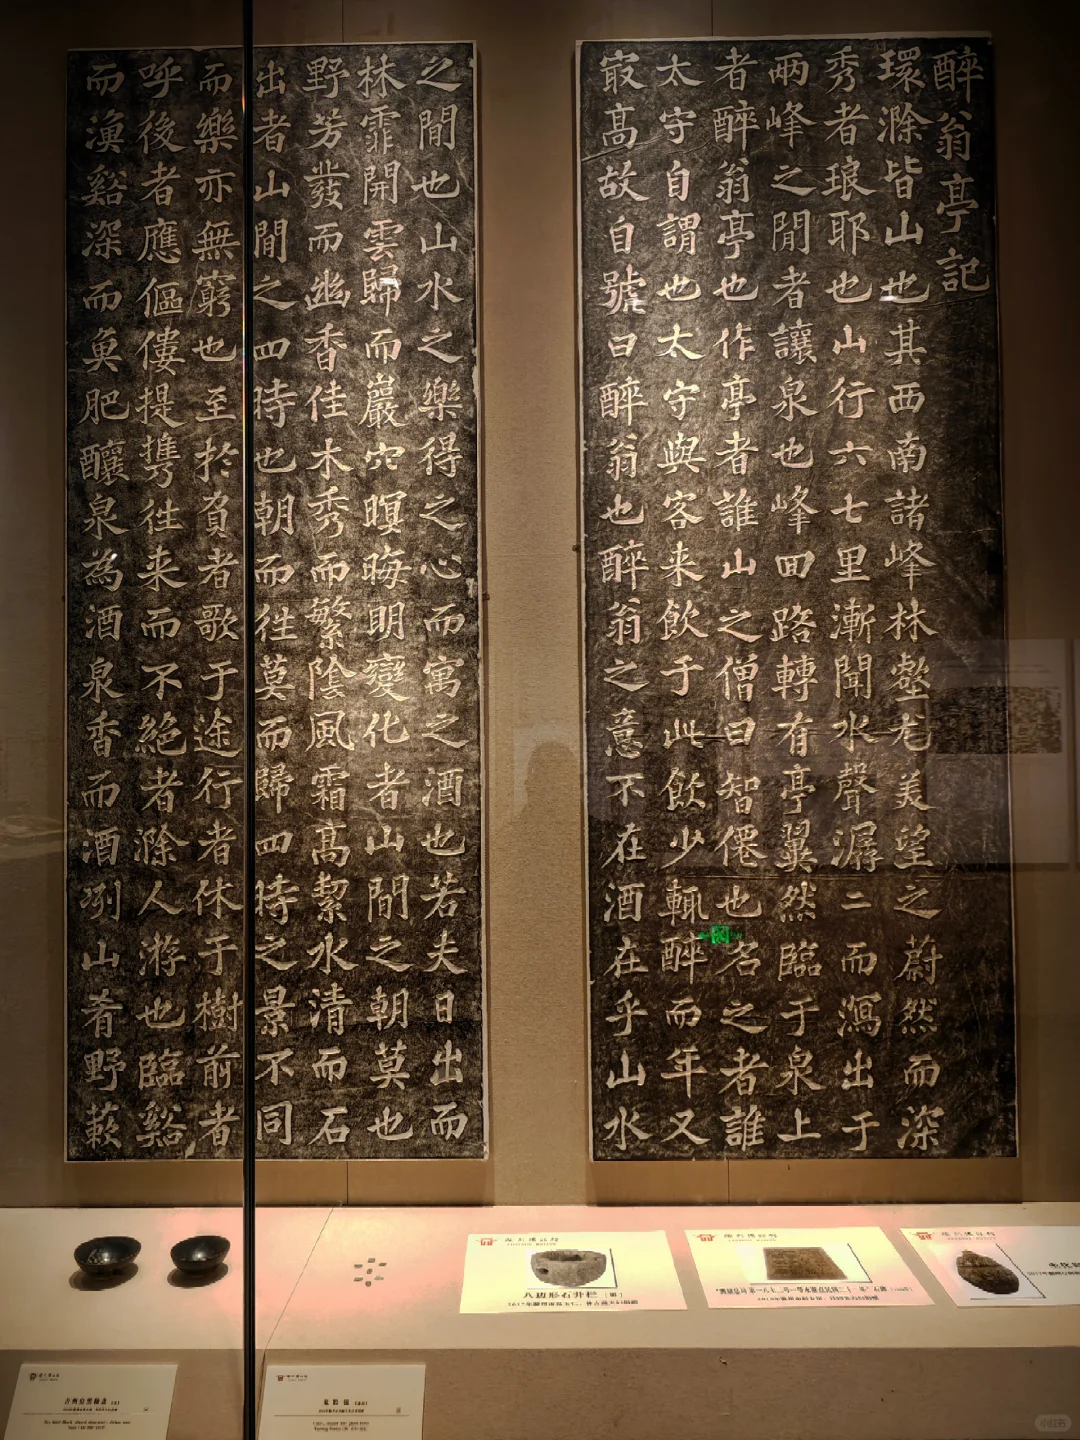 醉翁亭記
環滁皆山也其西南諸峰林壑尤美望之蔚然而深
秀者琅耶也山行六七里漸聞水聲潺二而瀉出于
兩峰之間者讓泉也峰回路轉有亭翼然臨于泉上
者醉翁亭也作亭者誰山之僧曰智僊也名之者誰
太守自謂也太守與客来飲于此飲少輒醉而年又
㝡高故自號曰醉翁也醉翁之意不在酒在乎山水
之間也山水之樂得之心而寓之酒也若夫日出而
林霏開雲歸而巖穴暝晦明變化者山間之朝莫也
野芳發而幽香佳木秀而繁陰風霜高絜水清而石
出者山間之四時也朝而往莫而歸四時之景不同
而樂亦無窮也至於負者歌于途行者休于樹前者
呼後者應傴僂提攜往来而不絕者滁人游也臨谿
而漁谿深而魚肥釀泉為酒泉香而酒冽山肴野蔌
八边形石井栏
小红书